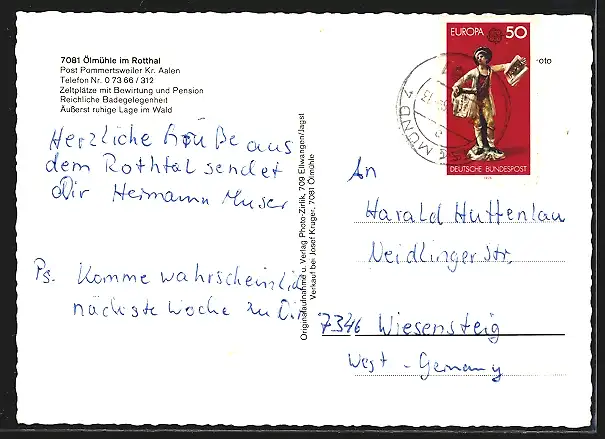 7081 Ölmühle im Rotthal
Post Pommertsweiler Kr. Aalen
Telefon Nr. 0 73 66 / 312
Zeltplätze mit Bewirtung und Pension
Reichliche Badegelegenheit
Äußerst ruhige Lage im Wald
Herzliche Grüße aus
dem Rothtal sendet
Dir Hermann
Ps. Komme wahrscheinlich
nächste Woche zu Dir
Originalaufnahme u. Verlag Photo-Zirlik, 709 Ellwangen/Jagst
Verkauf bei Josef Kruger, 7081 Ölmühle
EUROPA 50
DEUTSCHE BUNDESPOST
GMÜND
oto
An
Harald Huttenlau
Neidlingerstr.
7346 Wiesensteig
West-Germany